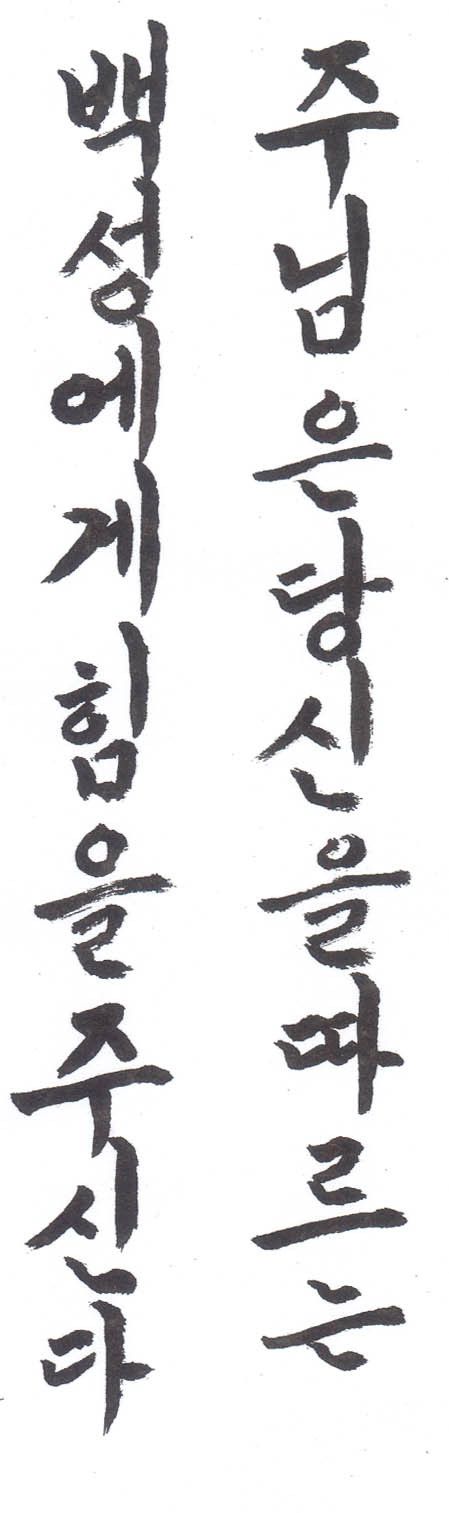 주님은당신을따르는
백성에게힘을주신다